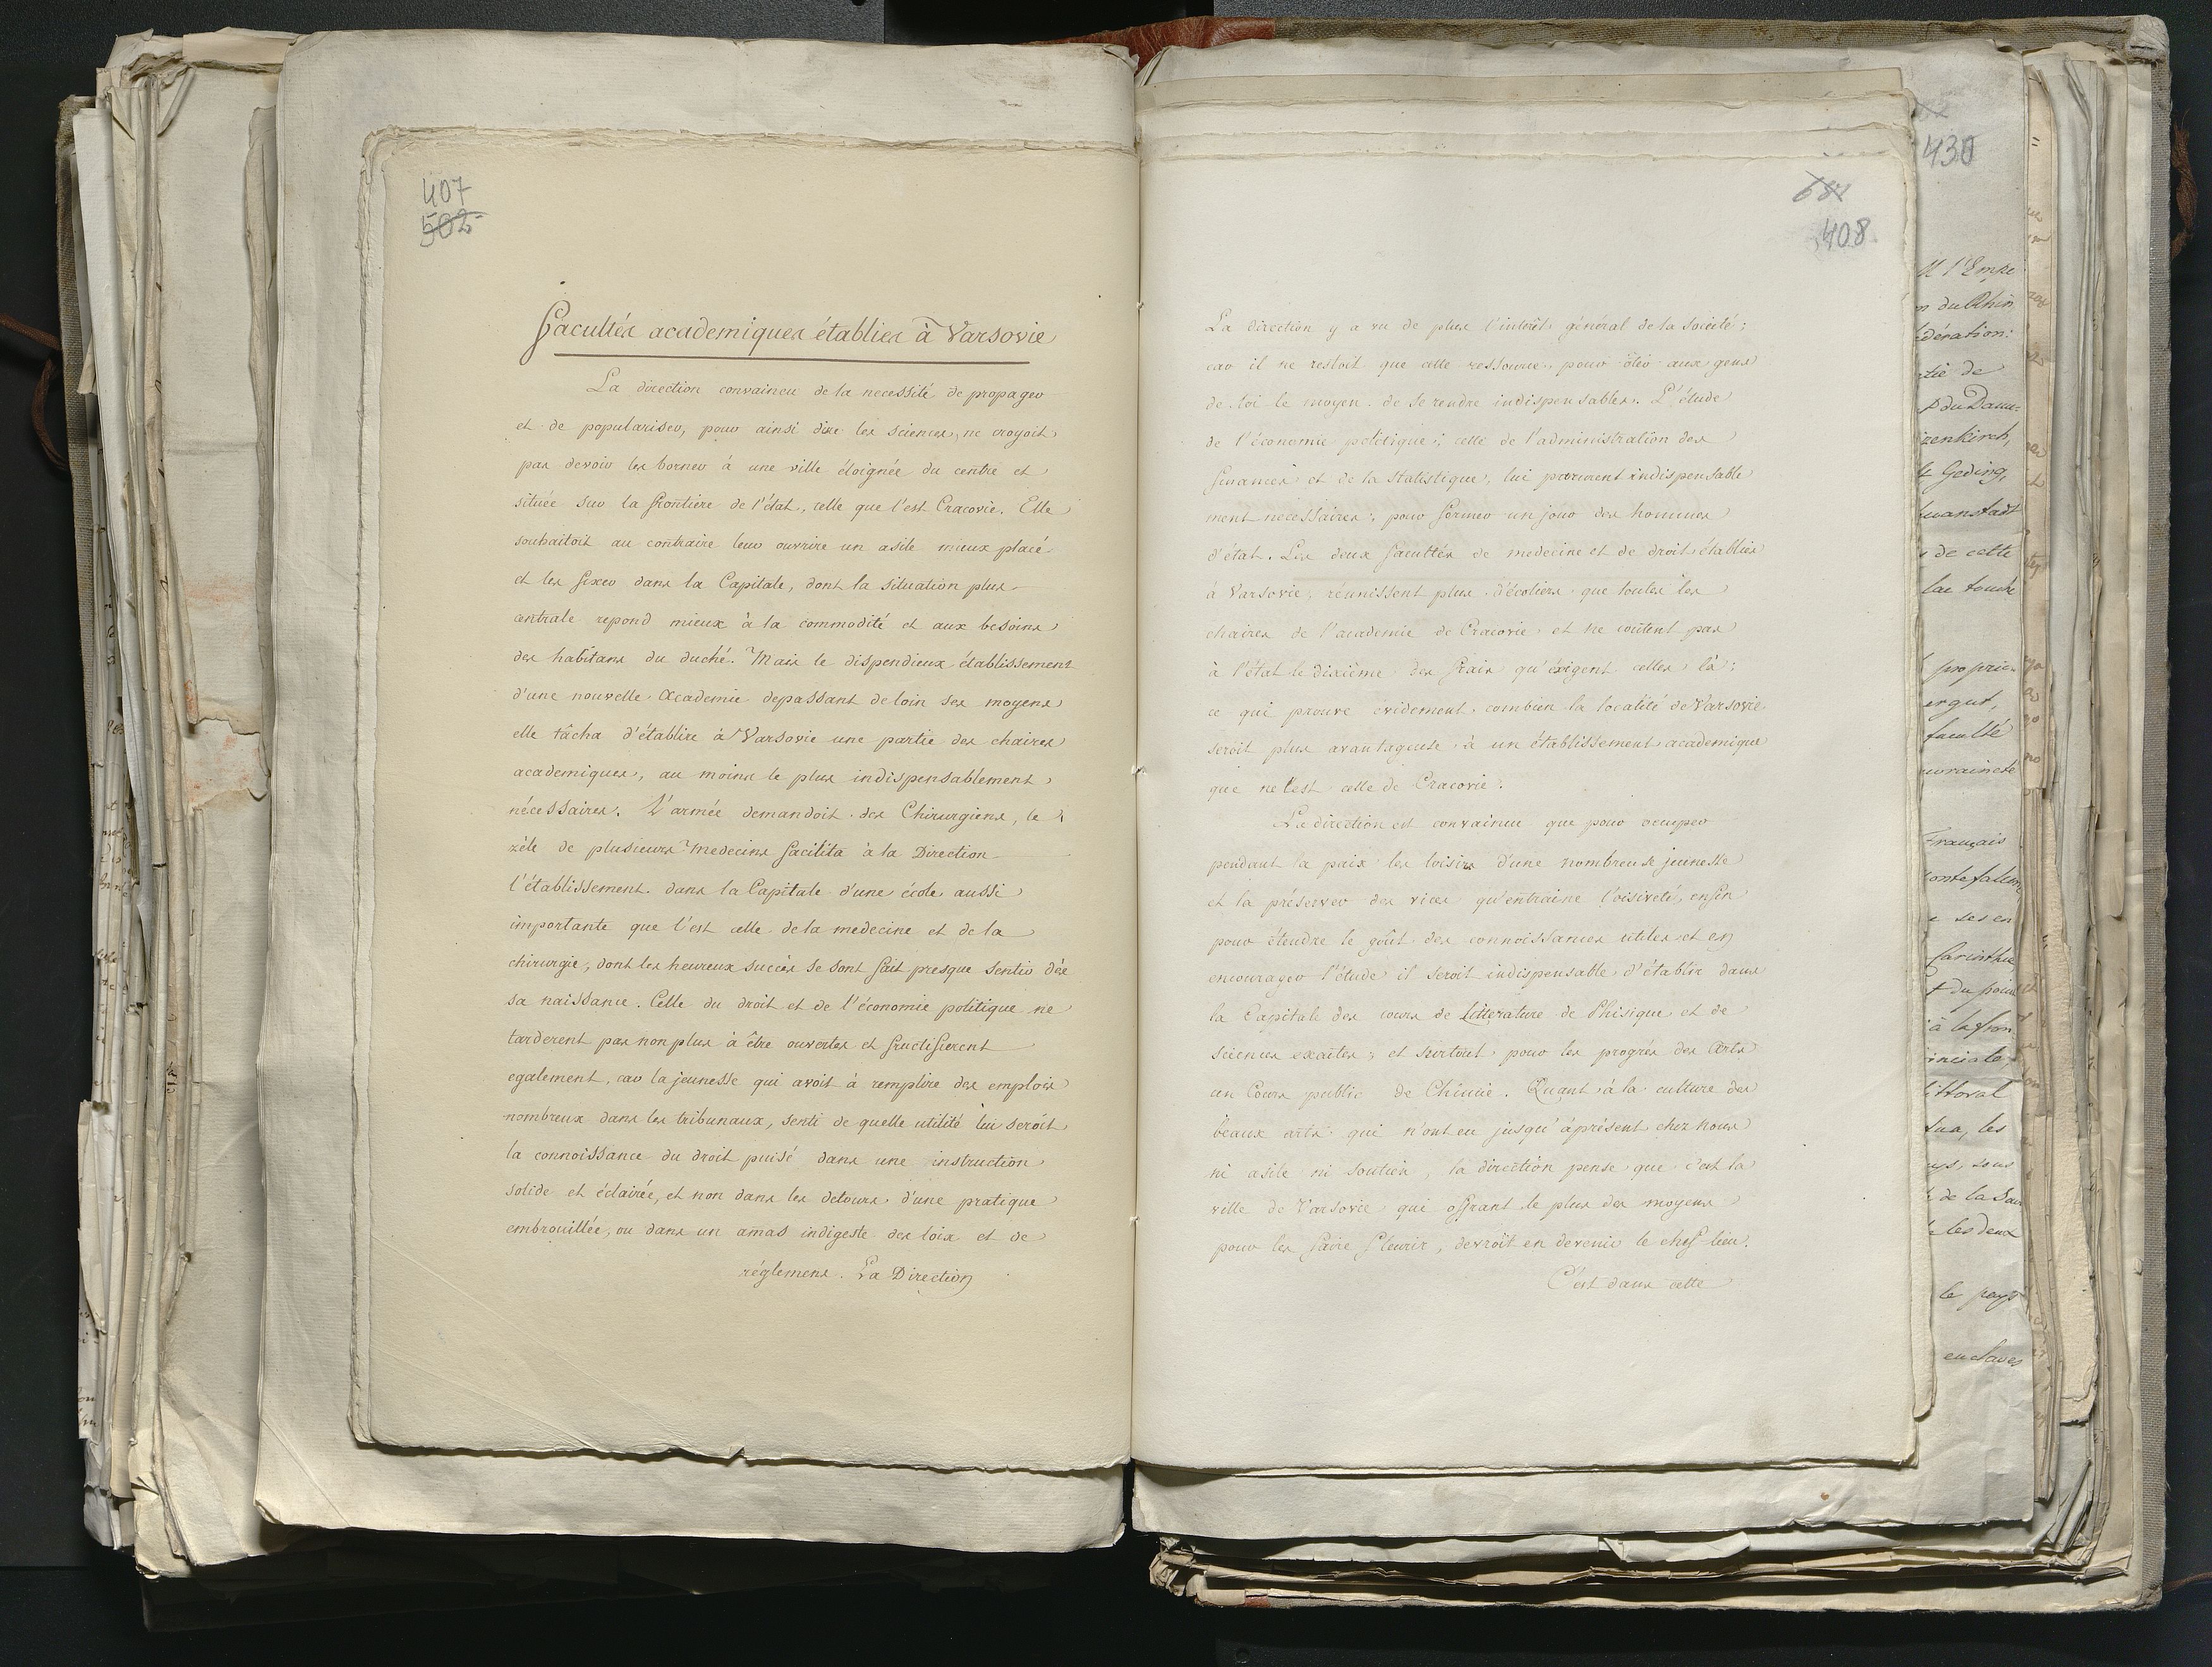 407
502
Facultés academiques établies à Varsovie
La direction convaincu de la necessité de propager
et de populariser, pour ainsi dire les sciences, ne croyoit
pas devoir les borner à une ville éloignée du centre et
située sur la frontiere de l'état, telle que l'est Cracovie. Elle
souhaitoit au contraire leur ouvrire un asile mieux placé
et les fixer dans la Capitale, dont la situation plus
centrale repond mieux à la commodité et aux besoins
des habitans du duché. Mais le dispendieux établissement
d'une nouvelle Academie depassant de loin ses moyens
elle tâcha d'établire à Varsovie une partie des chaires
academiques, au moins le plus indispensablement
nécessaires. L'armée demandoit des Chirurgiens, le
zèle de plusieurs Medecins facilita à la Direction
l'établissement dans la Capitale d'une école aussi
importante que l'est celle de la medecine et de la
chirurgie, dont les heureux succès se sont fait presque sentir dès
sa naissance. Celle du droit et de l'économie politique ne
tarderent pas non plus à être ouvertes et fructifierent
egalement, car la jeunesse qui avoit à remplire des emplois
nombreux dans les tribunaux, senti de quelle utilité lui seroit
la connoissance du droit puisé dans une instruction
solide et éclairée, et non dans les detours d'une pratique
embrouillée, ou dans un amas indigeste des loix et de
réglemens. La Direction
408
La direction y a vu de plus l'interêt général de la société;
car il ne restoit que cette ressource, pour ôter aux gens
de loi le moyen de se rendre indispensables. L'étude
de l'économie politique; celle de l'administration des
finances et de la statistique, lui parurent indispensable
ment necessaires, pour former un jour des hommes
d'état. Les deux facultés de medecine et de droit établies
à Varsovie, reunissent plus d'écoliers que toutes les
chaires de l'academie de Cracovie et ne coûtent pas
à l'état le dixième des frais qu'éxigent celles là;
ce qui prouve évidement combien la localité de Varsovie
seroit plus avantageuse à un établissement academique
que ne l'est celle de Cracovie.
La direction est convaincue que pour occuper
pendant la paix les loisirs d'une nombreuse jeunesse
et la préserver des vices qu'entraine l'oisiveté, enfin
pour étendre le goût des connoissances utiles et en
encourager l'étude il seroit indispensable d'établir dans
la Capitale des cours de Litterature de Phisique et de
sciences exactes; et surtout pour les progrés des Arts
un Cours public de Chimie. Quant à la culture des
beaux arts qui n'ont eu jusqu'àprésent chez nous
ni asile ni soutien, la direction pense que c'est la
ville de Varsovie qui offrant le plus des moyens
pour les faire fleurir, devroit en devenir le chef lieu.
C'est dans cette
430
du Rhin
dération:
tié de
renkirch,
Geding,
de cette
proprie-
faculté
Français
ses en
Carinthie
littoral
les
sous
les deux
le pays
enclaves